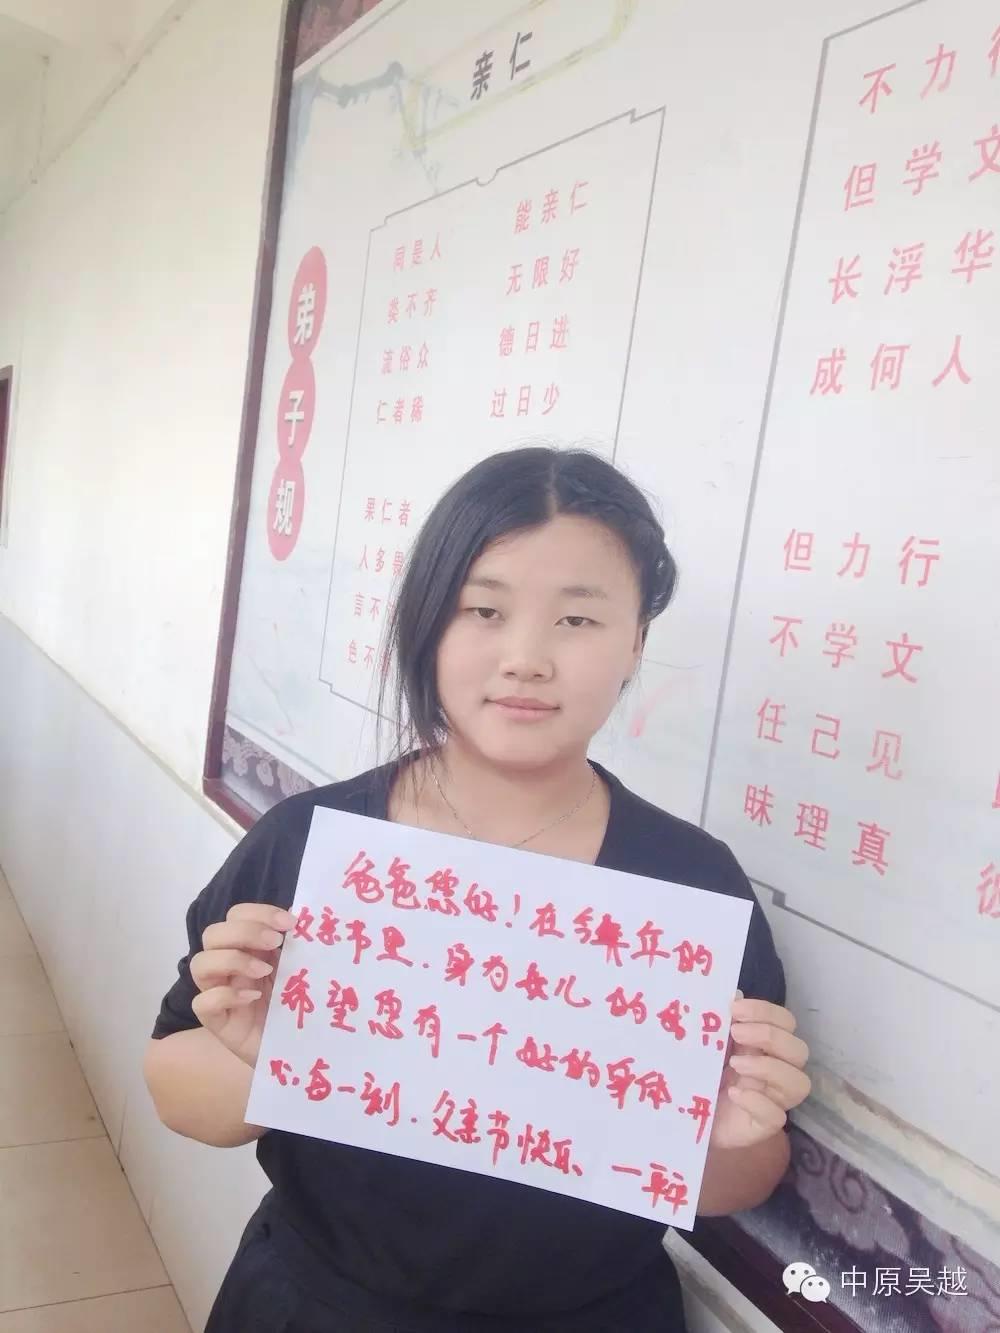 亲仁
弟子规
同是人
类不齐
流俗众
仁者稀
能亲仁
无限好
德日进
过日少
果仁者
人多畏
言不
色不
不力行
但学文
长浮华
成何人
但力行
不学文
任己见
昧理真
爸爸您好！在今年的
父亲节里．身为女儿的我只
希望您有一个好的身体．开
心每一刻．父亲节快乐 一
中原吴越